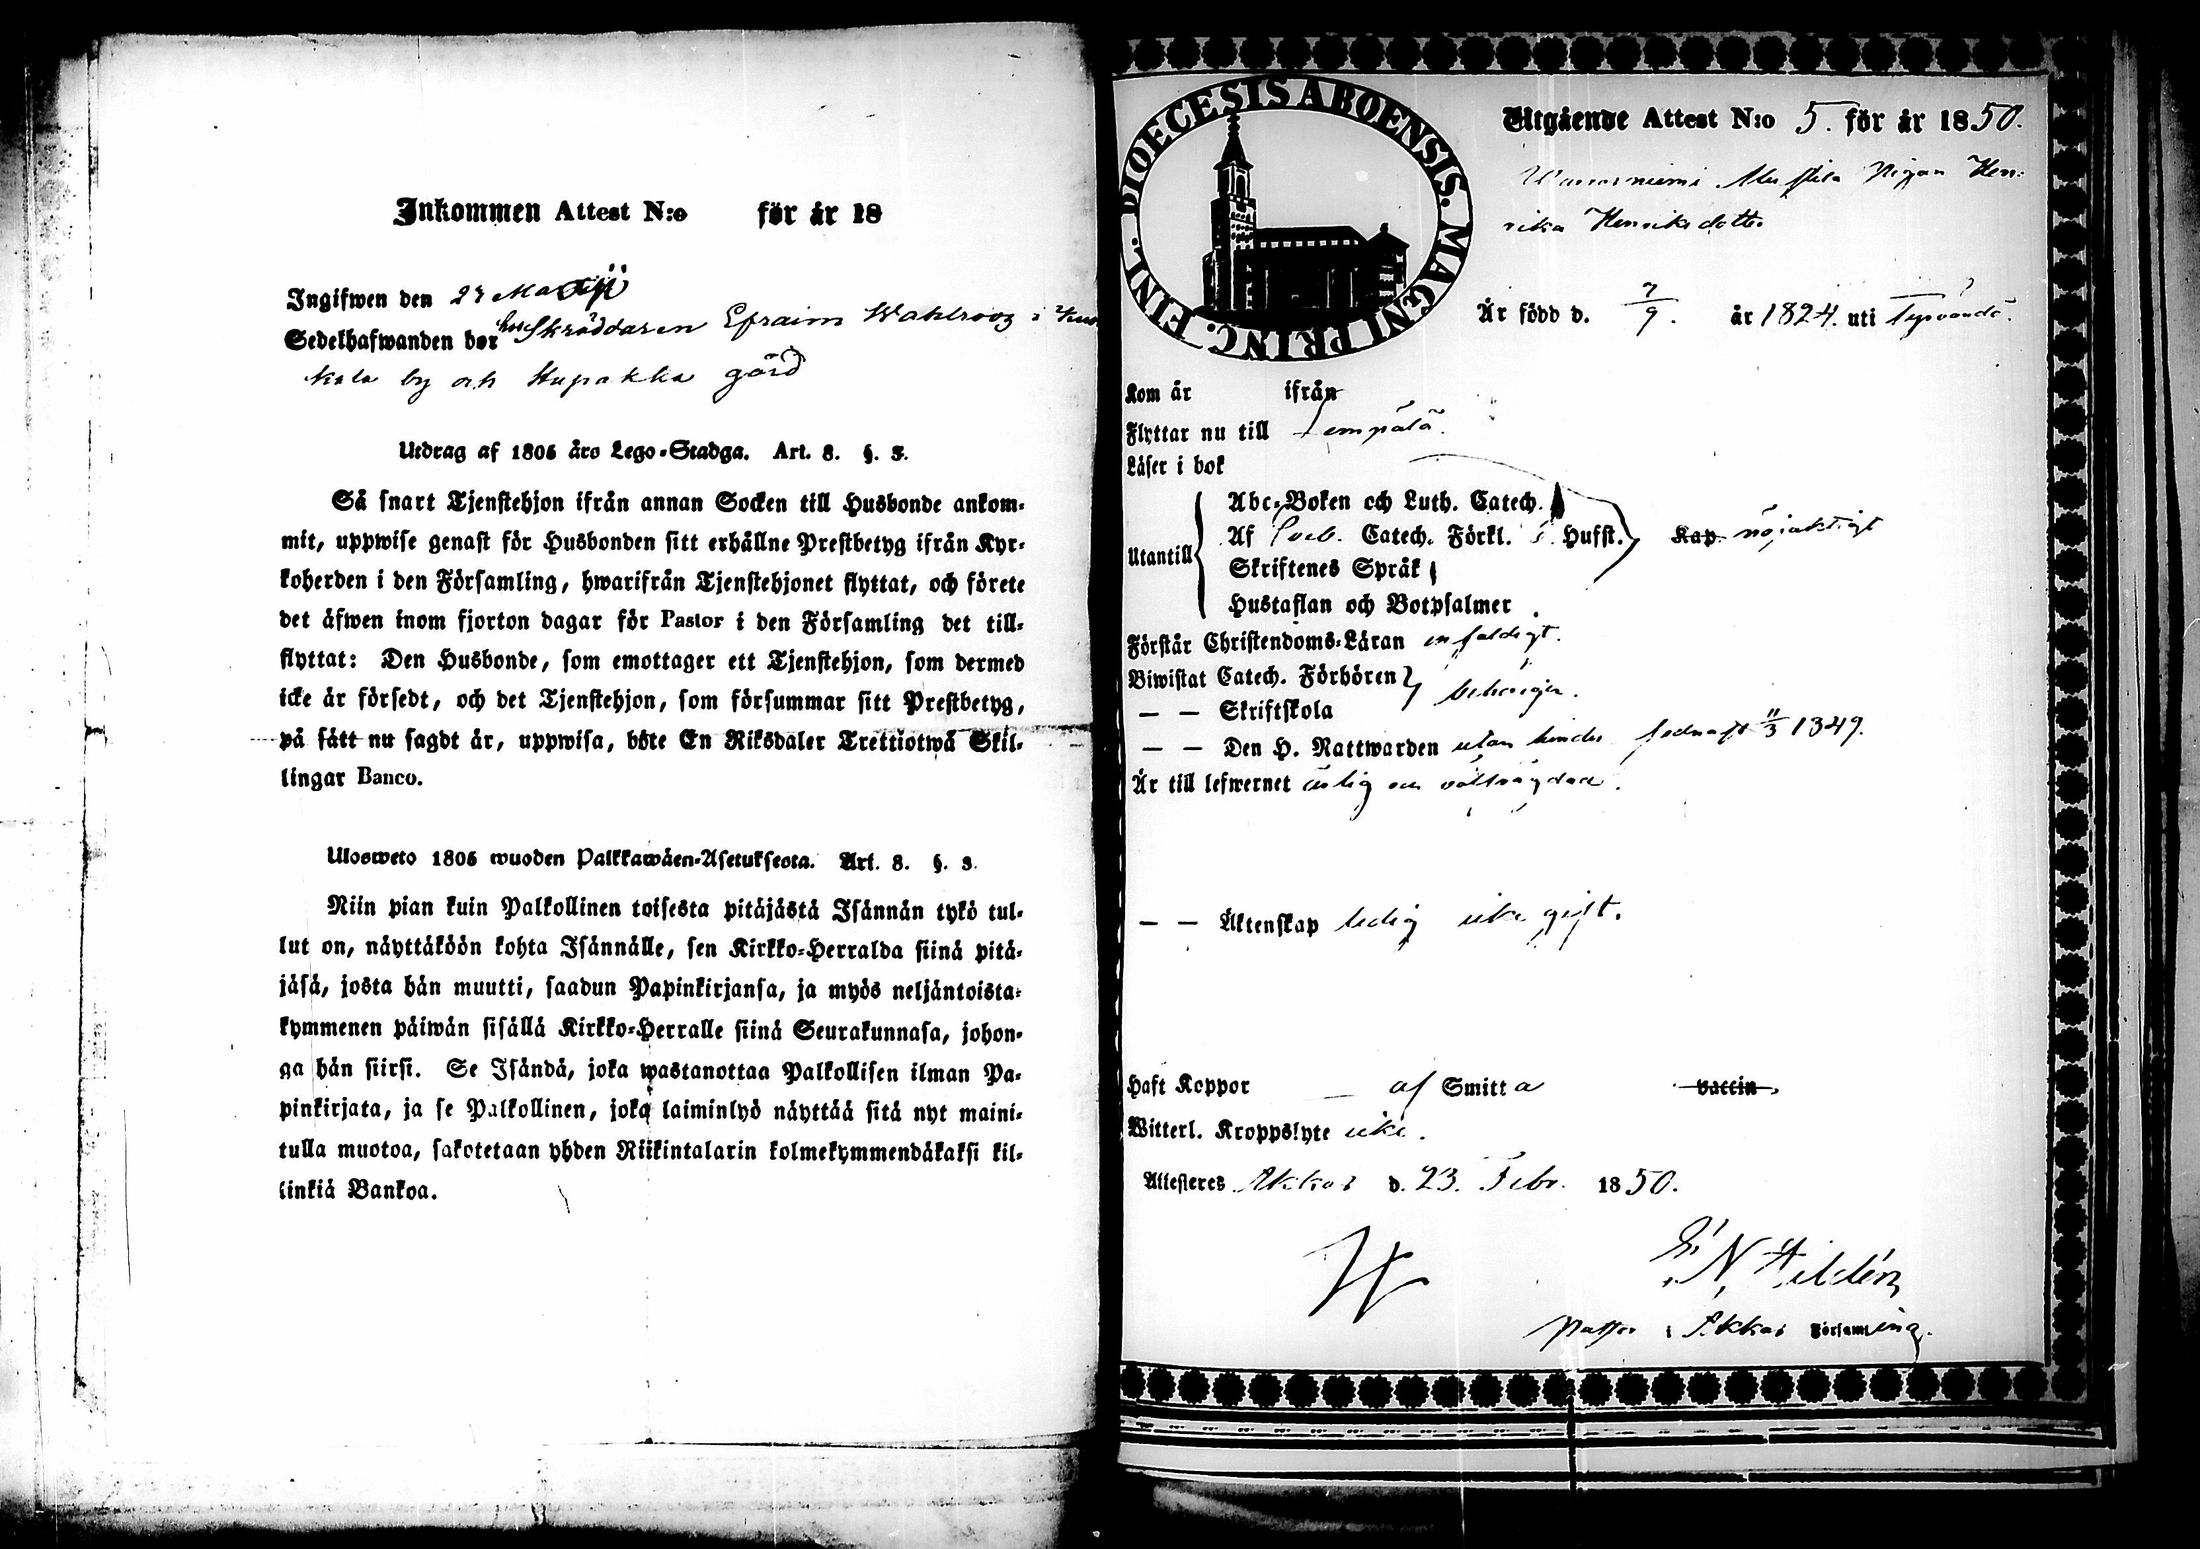 Inkommen Attest N:o för år 18
Ingifwen den 23 Martii
Sedelhafwanden bor hos Skräddaren Efraim Wahlroos i
kala by och Hupakka gård
Utdrag af 1805 års Lego-Stadga. Art. 8. §. 3.
Så snart Tjenstehjon ifrån annan Socken till Husbonde ankom-
mit, uppwise genast för Husbonden sitt erhållne Prestbetyg ifrån Kyr-
koherden i den Församling, hwarifrån Tjenstehjonet flyttat, och förete
det äfwen inom fjorton dagar för Pastor i den Församling det till-
flyttat: Den Husbonde, som emottager ett Tjenstehjon, som dermed
icke är försedt, och det Tjenstehjon, som försummar sitt Prestbetyg,
på sätt nu sagdt är, uppwisa, böte En Riksdaler Trettiotwå Skil-
lingar Banco.
Ulosweto 1805 wuoden Palkkawäen-Asetuksesta. Art. 8. §. 3.
Niin pian kuin Palkollinen toisesta pitäjästä Isännän tykö tul-
lut on, näyttäköön kohta Isännälle, sen Kirkko-Herralda siinä pitä-
jäsä, josta hän muutti, saadun Papinkirjansa, ja myös neljäntoista-
kymmenen päiwän sisällä Kirkko-Herralle siinä Seurakunnasa, johon-
ga hän siirsi. Se Isändä, joka wastanottaa Palkollisen ilman Pa-
pinkirjata, ja se Palkollinen, joka laiminlyö näyttää sitä nyt maini-
tulla muotoa, sakotetaan yhden Riikintalarin kolmekymmendäkaksi kil-
linkiä Bankoa.
FINL. DIOECESIS ABOENSIS. MAGNI PRINC.
Utgående Attest N:o 5. för år 1850.
Mustila Pigan Hen-
rika Henriksdotter
Är född d. 7/9. år 1824. uti Tyrvändö.
Kom år ifrån
Flyttar nu till Lempälä.
Läser i bok
Utantill
Abc-Boken och Luth. Catech.
Af Sveb. Catech. Förkl. o. Hufst. Kap. nöjaktigt
Skriftenes Språk
Hustaflan och Botpsalmer
Förstår Christendoms-Läran enfaldigt.
Biwistat Catech. Förhören behörigen.
— — Skriftskola
— — Den H. Nattwarden utan hinder sednast 11/3 1849.
Är till lefwernet ärlig och välfrägdad.
— — Äktenskap ledig icke gift.
Haft Koppor — af Smitta vaccin
Witterl. Kroppslyte icke.
Attesteres Akkas d. 23. Febr. 1850.
E. N. Hildén
Pastor i Akkas Församling.